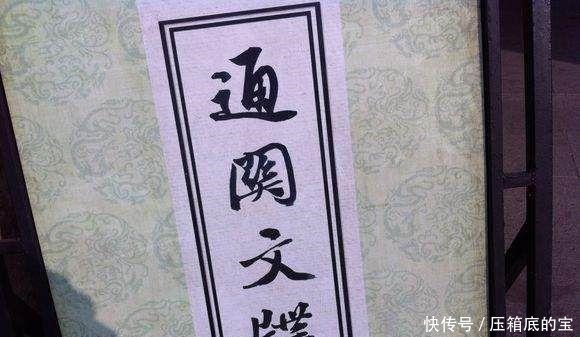 通關文牒
快传号 / 压箱底的宝